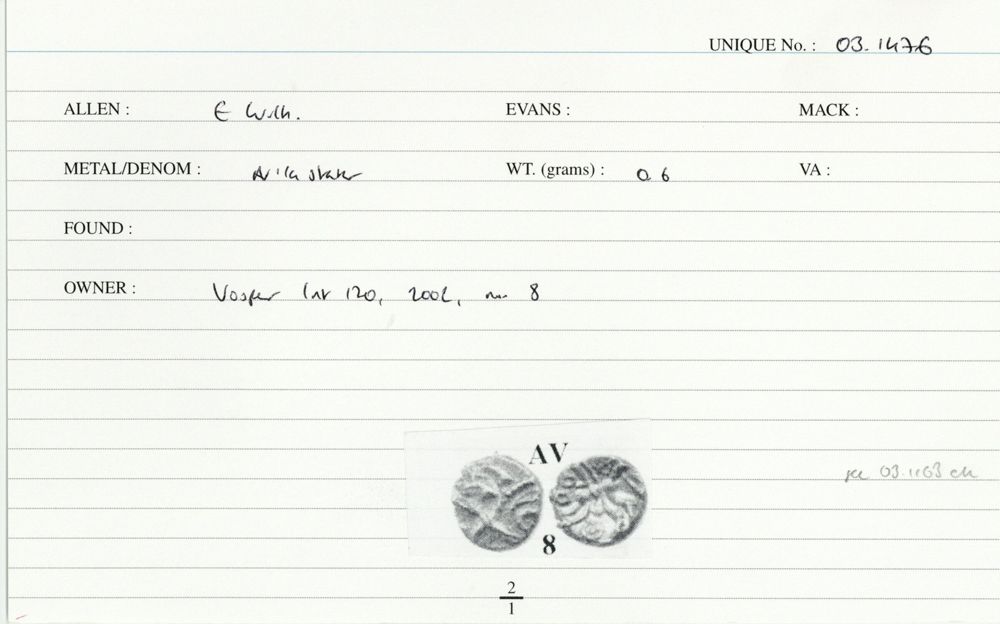 UNIQUE No. : 03.1476
ALLEN : E Wilt. EVANS : MACK :
METAL/DENOM : AV 1/4 stater WT. (grams) : 0.6 VA :
FOUND :
OWNER : Vosper list 120, 2002, no. 8
AV
8
03.1163
2
1